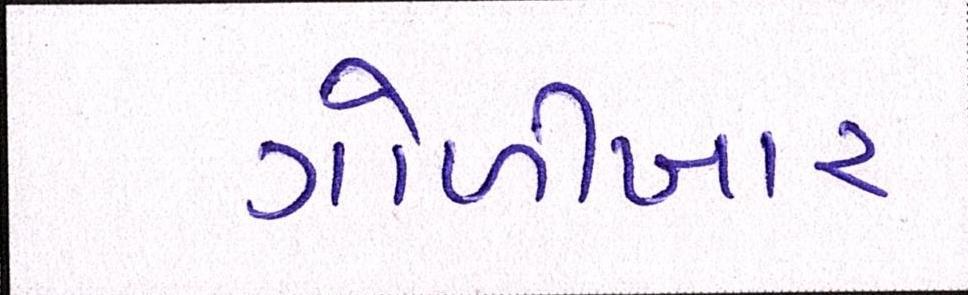 ગોળીબાર